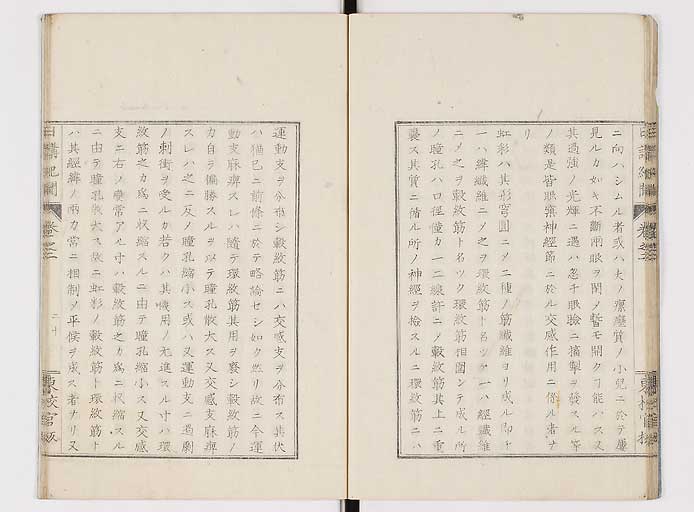 ニ向ハシムル者或ハ大ノ瘰癧質ノ小兒ニ於テ屢
見ルカ如キ不斷兩眼ヲ閉メ暫モ開ク丁能ハス又
其過強ノ光輝ニ遇ハ忽チ眼瞼ニ搐掣ヲ發スル等
ノ類是皆眼窠神經節ニ於ル交感作用ニ係ル者ナ
リ
虹彩ハ其形穹圓ニメ二種ノ筋纖維ヨリ成ル即チ
一ハ緯纖維ニメ之ヲ環紋筋ト名ツケ一ハ經纖維
ニメ之ヲ縠紋筋ト名ツク環紋筋相圍ンテ成ル所
ノ瞳孔ハ口徑僅カ一二線許ニメ縠紋筋其上ニ重
襲ス其質ニ循ル所ノ神經ヲ檢スルニ環紋筋ニハ
運動支ヲ分布シ縠紋筋ニハ交感支ヲ分布ス其伏
ハ猶已ニ前條ニ於テ略論セシ如ク然リ故ニ今運
動支麻痺スレハ隨テ環紋筋其用ヲ衰シ縠紋筋ノ
力自ラ偏勝スルヲ以テ瞳孔散大ス又交感支麻痺
スレハ之ニ反メ瞳孔縮小ス或ハ又運動支ニ過劇
ノ刺衝ヲ受ルカ若クハ其機用ノ亢進スル寸ハ環
紋筋之カ爲ニ收縮スルニ由テ瞳孔縮小ス又交感
支ニ右ノ變常アル寸ハ縠紋筋之カ爲ニ收縮スル
ニ由テ瞳孔散大ス故ニ虹彩ノ縠紋筋ト環紋筋ト
ハ其經緯ノ兩力常ニ相制メ平候ヲ成ス者ナリ又
二十